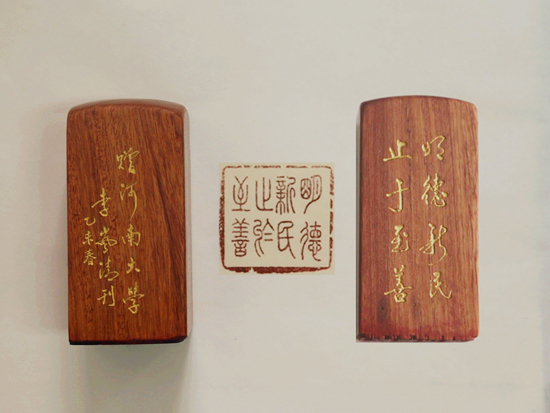 赠河南大學
李岚清刊
乙未春
明德
新民
止於
至善
明德新民
止于至善